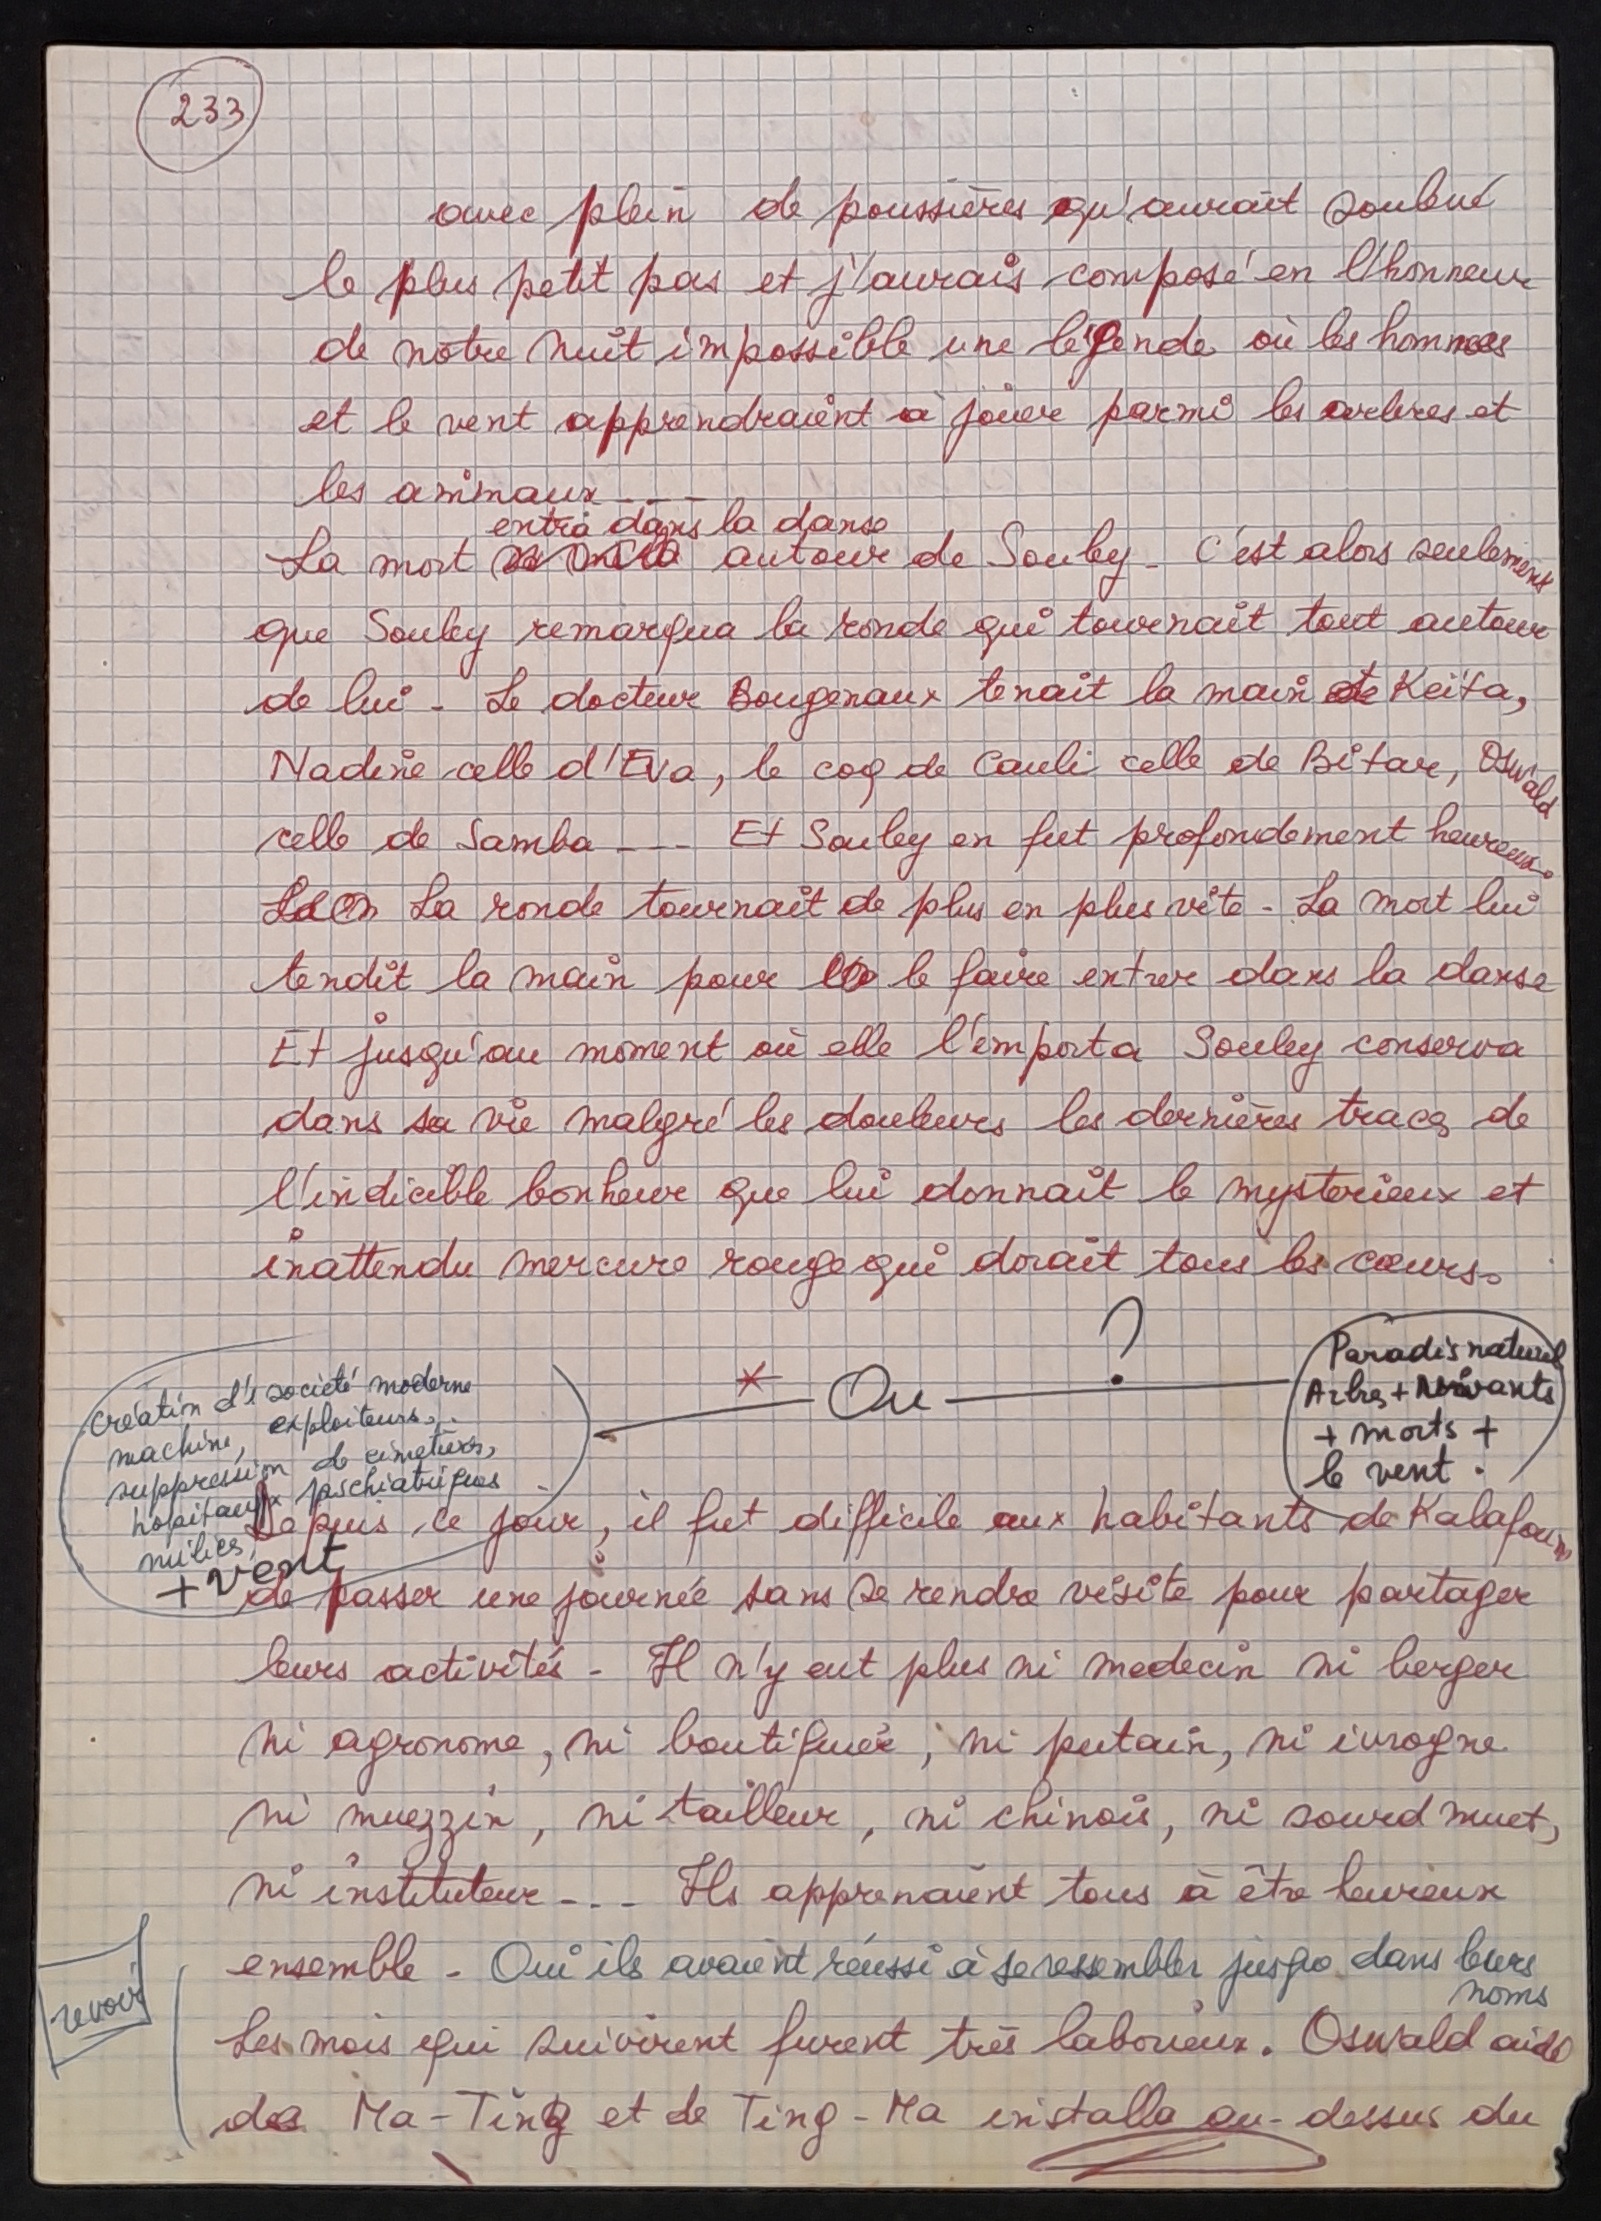 233
avec plein de poussières qu'aurait soulevé
le plus petit pas et j'aurais composé en l'honneur
de notre nuit impossible une légende où les hommes
et le vent apprendraient à jouer parmi les arbres et
les animaux ---
entra dans la danse
La mort autour de Souley - C'est alors seulement
que Souley remarqua la ronde qui tournait tout autour
de lui - Le docteur Bougenaux tenait la main de Keïta,
Nadine celle d'Eva, le coq de Cauli celle de Bitar, Oswald
celle de Samba --- Et Souley en fut profondement heureux.
La ronde tournait de plus en plus vite - La mort lui
tendit la main pour le faire entrer dans la danse
Et jusqu'au moment où elle l'emporta Souley conserva
dans sa vie malgré les douleurs les dernières traces de
l'indicible bonheur que lui donnait le mysterieux et
inattendu mercure rouge qui dorait tous les cœurs.
* Ou ?
création d'1 société moderne
machine, exploiteurs...
suppression de cimetières,
hopitaux psichiatriques
milices
+ vent
Paradis naturel
Arbres + vivants
+ morts +
le vent.
Depuis ce jour, il fut difficile aux habitants de Kalafoum
de passer une journée sans se rendre visite pour partager
leurs activités - Il n'y eut plus ni medecin ni berger
ni agronome, ni boutiquier, ni putain, ni ivrogne
ni muezzin, ni tailleur, ni chinois, ni sourd muet,
ni instituteur --- Ils apprenaient tous à être heureux
ensemble - Oui ils avaient réussi à se ressembler jusque dans leurs
noms
revoir
Les mois qui suivirent furent très laborieux. Oswald aidé
de Ma-Ting et de Ting-Ma installa au-dessus du